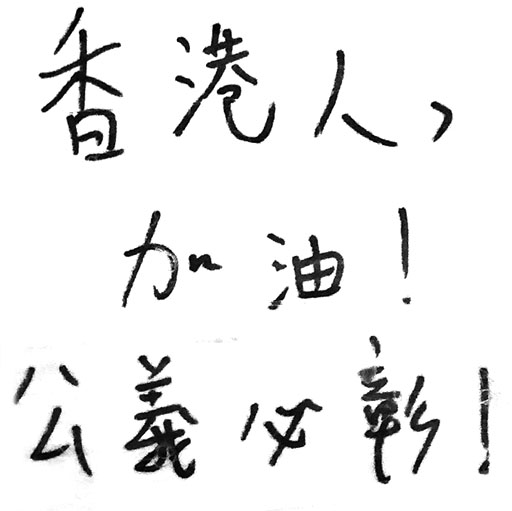 香港人，
加油！
公義必彰！